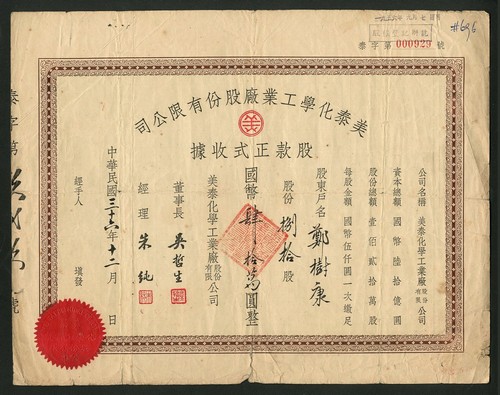 #696
泰字第000929號
美泰化學工業廠股份有限公司
美
股款正式收據
公司名稱 美泰化學工業廠股份有限公司
資本總額 國幣陸拾億圓
股份總額 壹佰貳拾萬股
每股金額 國幣伍仟圓一次繳足
股東戶名 鄭樹康
股份 捌拾股
國幣肆拾萬圓整
美泰化學工業廠股份有限公司
董事長 吳哲生
經理 朱純
中華民國三十六年十二月 日
經手人 填發
泰字第 號